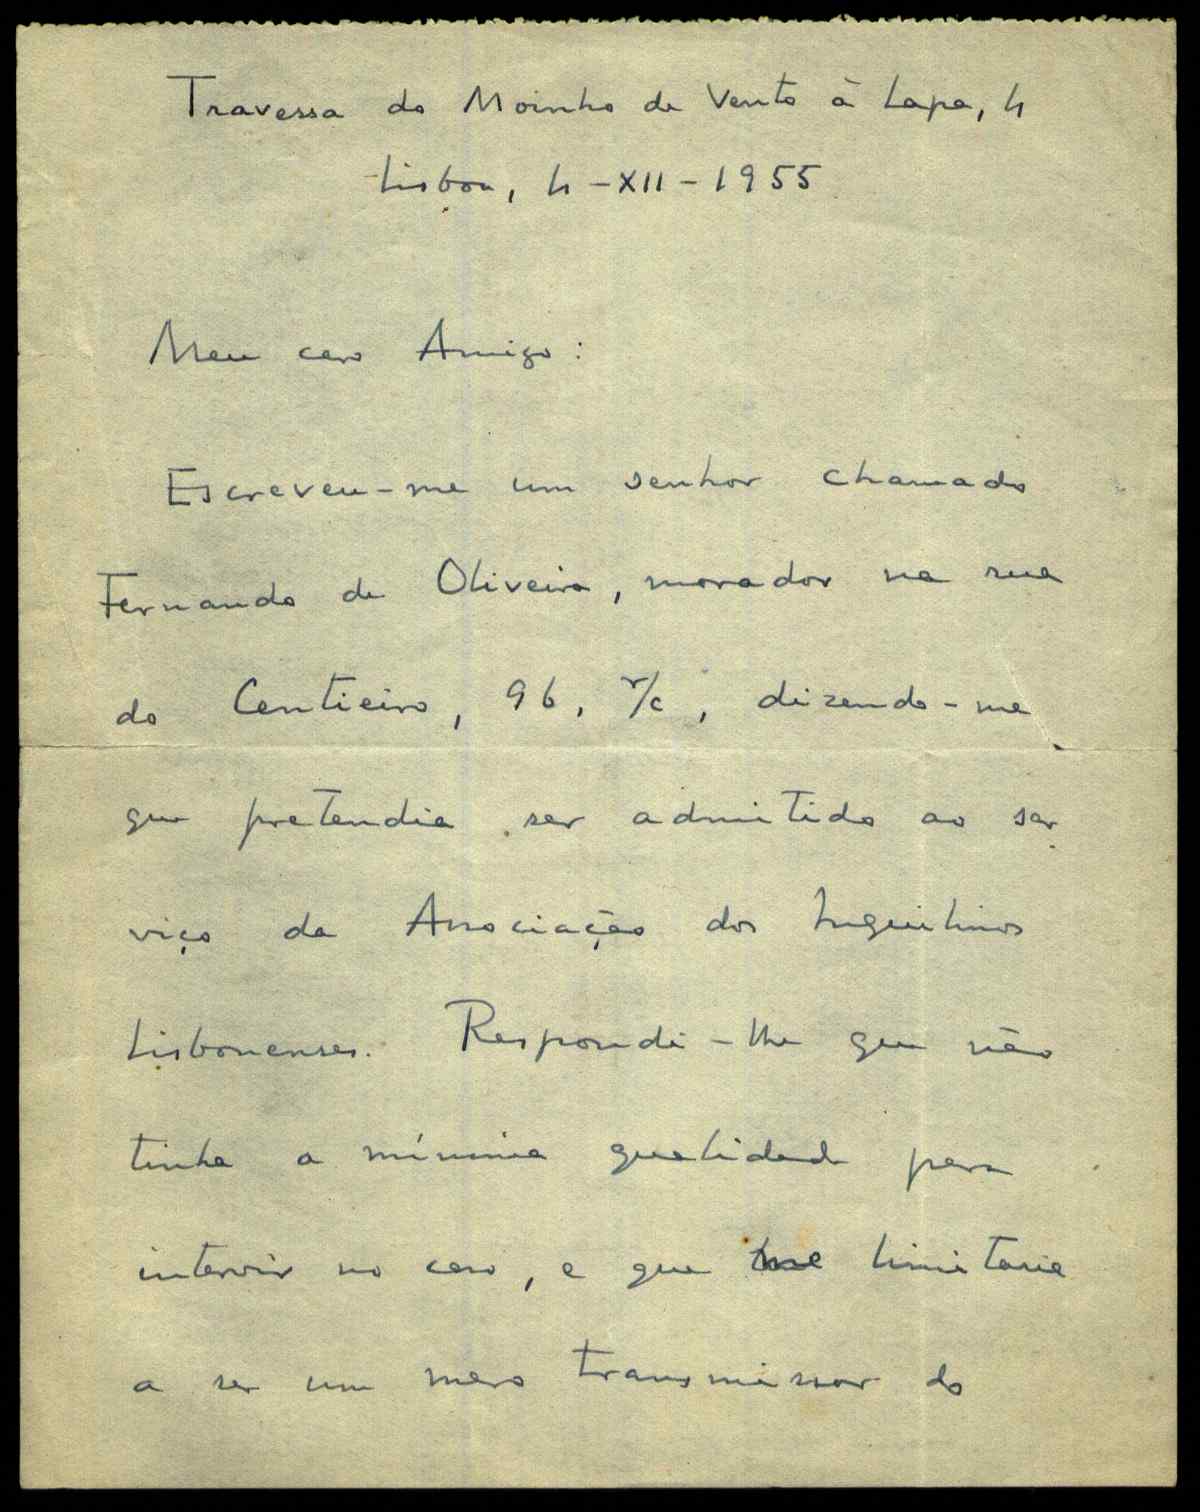 Travessa do Moinho de Vento à Lapa, 4
Lisboa, 4-XII-1955
Meu caro Amigo:
Escreveu-me um senhor chamado
Fernando de Oliveira, morador na rua
do Centieiro, 96, r/c, dizendo-me
que pretendia ser admitido ao ser
viço da Associação dos Inquilinos
Lisbonenses. Respondi-lhe que não
tinha a mínima qualidade para
intervir no caso, e que me limitaria
a ser um mero transmissor do